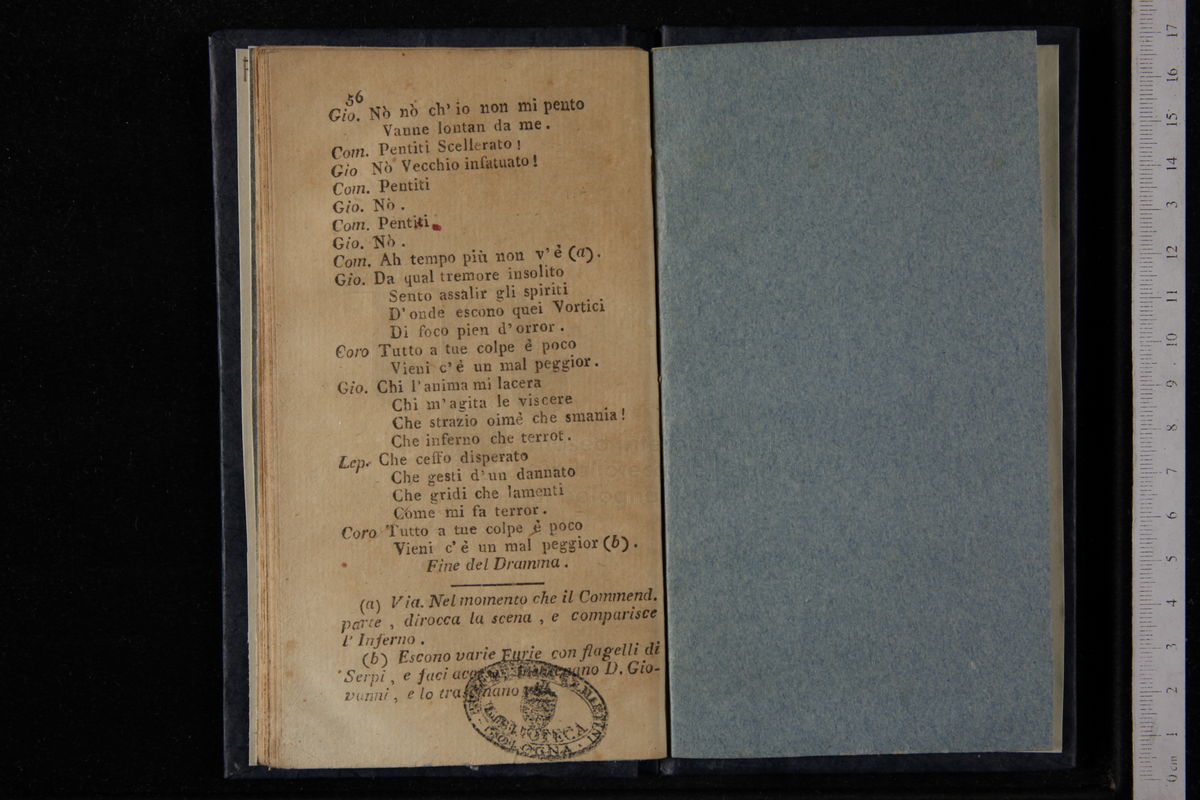 56
Gio. Nò nò ch' io non mi pento
Vanne lontan da me.
Com. Pentiti Scellerato!
Gio Nò Vecchio infatuato!
Com. Pentiti
Gio. Nò.
Com. Pentiti
Gio. Nò.
Com. Ah tempo più non v' è (a).
Gio. Da qual tremore insolito
Sento assalir gli spiriti
D' onde escono quei Vortici
Di foco pien d' orror.
Coro Tutto a tue colpe è poco
Vieni c' è un mal peggior.
Gio. Chi l' anima mi lacera
Chi m' agita le viscere
Che strazio oimè che smania!
Che inferno che terror.
Lep. Che ceffo disperato
Che gesti d' un dannato
Che gridi che lamenti
Come mi fa terror.
Coro Tutto a tue colpe è poco
Vieni c' è un mal peggior (b).
Fine del Dramma.
(a) Via. Nel momento che il Commend.
parte, dirocca la scena, e comparisce
l' Inferno.
(b) Escono varie Furie con flagelli di
Serpi, e faci D. Gio-
vanni, e lo
MARTINI
BIBLIOTECA
BOLOGNA
17
16
15
14
3
12
11
10
9
8
7
6
5
4
3
2
1
0 cm